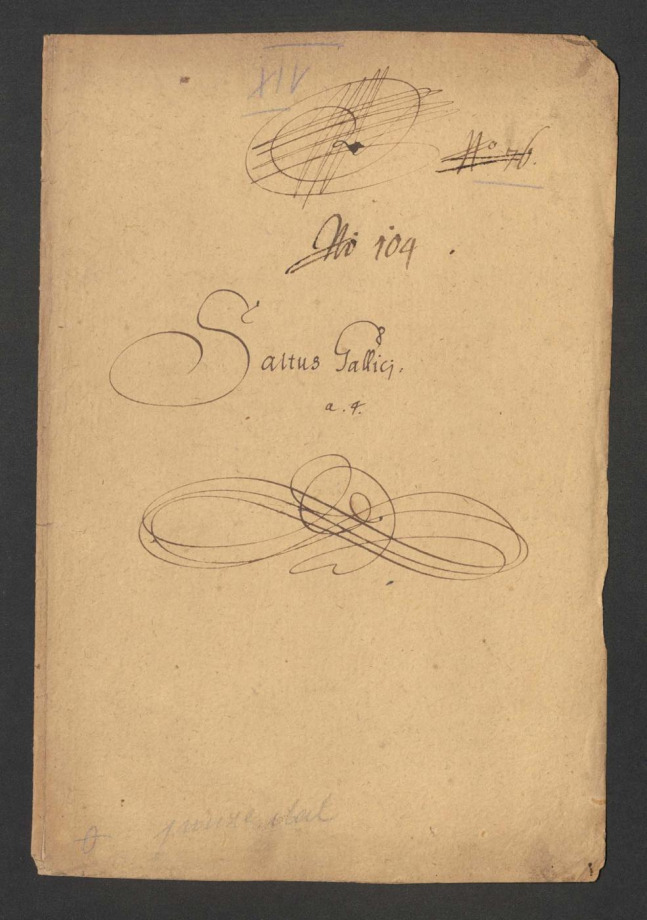 XIV
No 76.
No 104.
Saltus Gallicj.
8
a. 4.